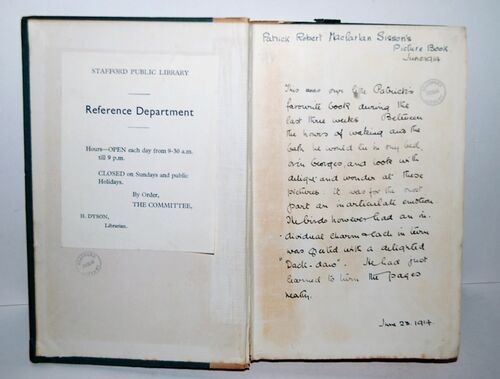 STAFFORD PUBLIC LIBRARY
Reference Department
Hours—OPEN each day from 9-30 a.m.
till 9 p.m.
CLOSED on Sundays and public
Holidays.
By Order,
THE COMMITTEE,
H. DYSON,
Librarian.
Patrick Robert Macfarlan Sisson's
Picture Book.
June 1914
This was our little Patrick's
favourite book during the
last three weeks Between
the hours of waking and the
bath he would lie in my bed,
or in George's, and look with
delight and wonder at these
pictures: it was for the most
part an inarticulate emotion.
The birds however had an in-
dividual charm & each in turn
was greeted with a delighted
"Dack-daw". He had just
learned to turn the pages
neatly.
June 23. 1914.